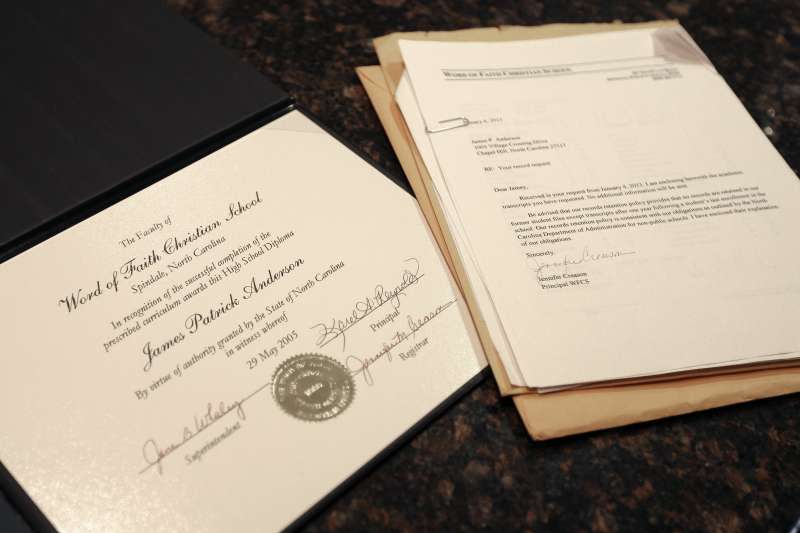 The Faculty of
Word of Faith Christian School
Spindale, North Carolina
In recognition of the successful completion of the
prescribed curriculum awards this High School Diploma
James Patrick Anderson
By virtue of authority granted by the State of North Carolina
in witness whereof
29 May 2005
Principal
Registrar
Superintendent
WORD OF FAITH CHRISTIAN SCHOOL
James P. Anderson
Chapel Hill, North Carolina
RE: Your record request
Dear Jamey,
Received is your request from January 4, 2013. I am enclosing herewith the academic
transcripts you have requested. No additional information will be sent.
Be advised that our records retention policy provides that no records are retained in our
former student files except transcripts after one year following a student's last enrollment in the
school. Our records retention policy is consistent with our obligations as outlined by the North
Carolina Department of Administration for non-public schools. I have enclosed their explanation
of our obligations.
Sincerely,
Jennifer Creason
Principal WFCS